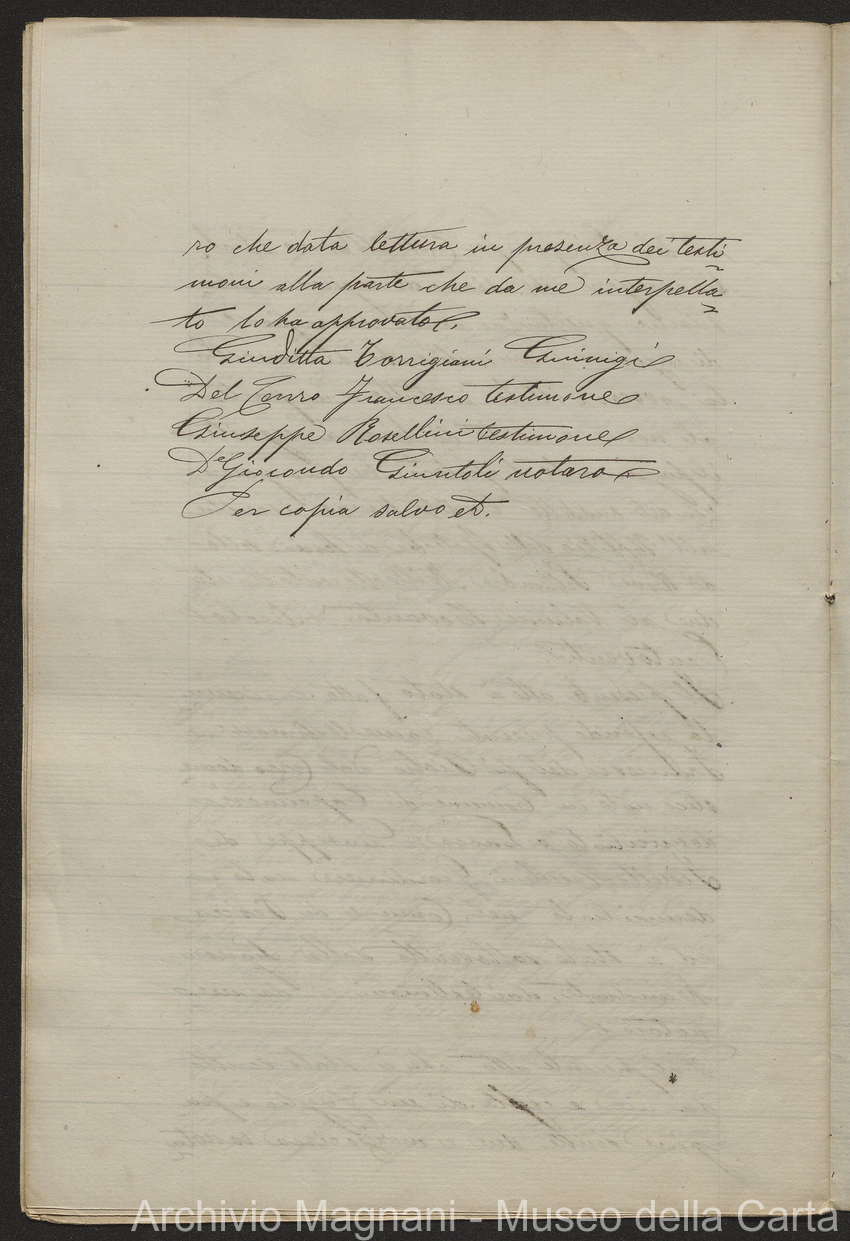 ro che data lettura in presenza dei testi
moni alla parte che da me interpella
to lo ha approvato.
Giuditta Torrigiani Guinigi
Del Cerro Francesco testimone
Giuseppe Rosellini testimone
Dr Giocondo Giuntoli notaro
Per copia salvo et.
Archivio Magnani - Museo della Carta